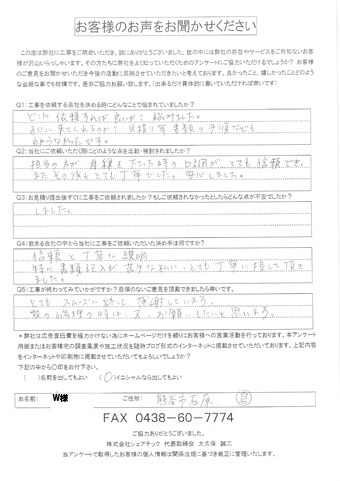 お客様のお声をお聞かせください
この度は弊社に工事をご用命いただき、誠にありがとうございました。世の中には弊社の存在やサービスをご存知ないお客
様が沢山いらっしゃいます。その方たちに弊社をよく知っていただくためのアンケートにご協力いただけるでしょうか？お客様
のご意見をお聞かせいただき今後の活動に反映させていただきたいと考えております。良かったこと、嬉しかったことどのよう
な些細な事でも結構です。是非ご協力お願い致します。(出来るだけ具体的に書いていただければ幸いです)
Q1:工事を依頼する会社を決める時にどんなことで悩まれていましたか？
どこに依頼すれば良いか？悩みました。
すぐに来てくれるのか？見積り等書類の手順なども
わからなかったです。
Q2:当社にご依頼いただく際にどのような点を比較・検討されましたか？
担当の方が見積を下さった時の説明が、とても信頼でき、
またその後もとても丁寧でした。安心しました。
Q3:お見積り提出後すぐに工事をご依頼されましたか？もしご依頼されなかったとしたらどんな点が不安でしたか？
しました。
Q4:数ある会社の中から当社に工事をご依頼いただいた決め手は何ですか？
信頼と丁寧な説明
特に書類記入が苦手な私に、とても丁寧に接して頂き
ました。
Q5:工事が終わってみていかがですか？忌憚のないご意見を頂戴できましたら幸いです。
とてもスムーズに終って感謝しています。
又、お願いしたいと思います。
＊弊社は広告宣伝費を極力かけない為にホームページだけを頼りにお客様への営業活動を行っております。本アンケート
用紙またはお客様宅の調査風景や施工状況を随時ブログ形式のインターネットに掲載させていただいております。上記内容
をインターネットや印刷物に掲載させていただいてもよろしいでしょうか？
下記の中から〇印をお付け下さい。
( )名前を出してもよい (〇)イニシャルなら出してもよい
お名前: W様 ご住所: 熊谷市石原
FAX 0438-60-7774
ご協力ありがとうございました。
株式会社シェアテック 代表取締役 大久保 誠二
当アンケートで取得したお客様の個人情報は関係法規に基づき厳正に管理いたします。